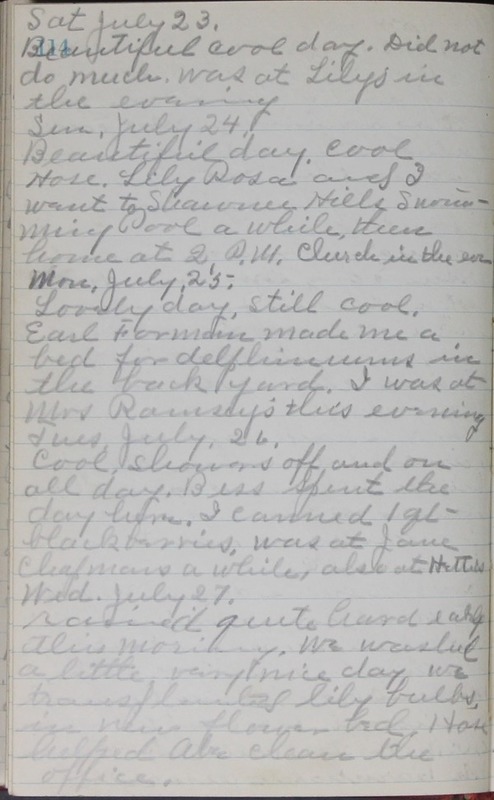 Sat July 23.
214
Beautiful cool day. Did not
do much. was at Lilys in
the evening
Sun. July 24.
Beautiful day. cool
Hose. Lily Rosa and I
want to Shawnee Hills Swim-
ming Pool a while, then
home at 2 P.M. Church in the eve
Mon, July, 25.
Lovely day, still cool.
Earl Forman made me a
bed for delphiniums in
the back yard. I was at
Mrs Ramseys this evening
Tues July, 26.
Cool, showers off and on
all day. Bess spent the
day here. I canned 1 qt-
blackberries, was at Jane
Chapmans a while, also at Hatties
Wed. July 27.
rained quite hard early
this morning. We washed
a little, very nice day, we
transplanted lily bulbs,
in new flower bed. Hose
helped Abe clean the
office.